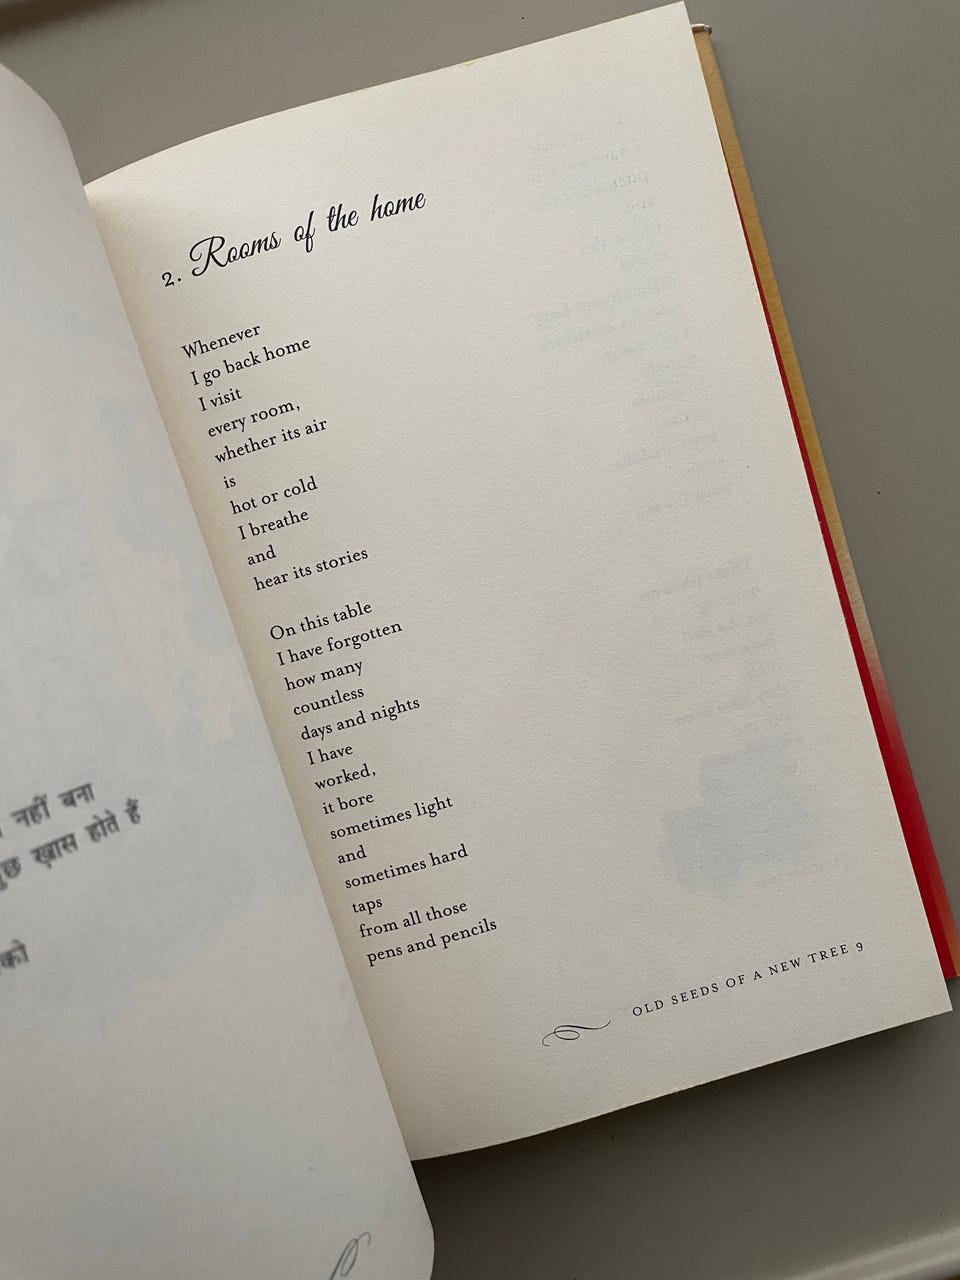 नहीं बना
कुछ ख़ास होते हैं
2. Rooms of the home
Whenever
I go back home
I visit
every room,
whether its air
is
hot or cold
I breathe
and
hear its stories
On this table
I have forgotten
how many
countless
days and nights
I have
worked,
it bore
sometimes light
and
sometimes hard
taps
from all those
pens and pencils
OLD SEEDS OF A NEW TREE 9